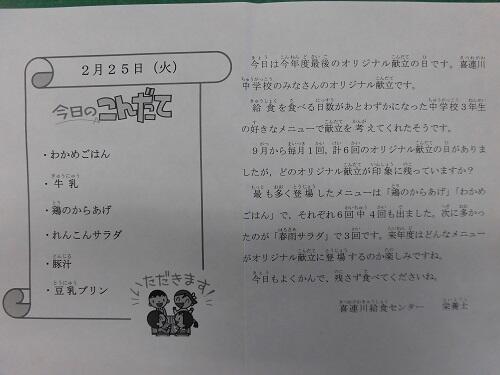 2月25日（火）
今日のこんだて
・わかめごはん
・牛乳
・鶏のからあげ
・れんこんサラダ
・豚汁
・豆乳プリン
いただきます!
今日は今年度最後のオリジナル献立の日です。喜連川
中学校のみなさんのオリジナル献立です。
給食を食べる日数があとわずかになった中学校3年生
の好きなメニューで献立を考えてくれたそうです。
9月から毎月1回、計6回のオリジナル献立の日がありま
したが、どのオリジナル献立が印象に残っていますか?
最も多く登場したメニューは「鶏のからあげ」「わかめ
ごはん」で、それぞれ6回中4回も出ました。次に多かっ
たのが「春雨サラダ」で3回です。来年度はどんなメニュー
がオリジナル献立に登場するのか楽しみですね。
今日もよくかんで、残さず食べてくださいね。
喜連川給食センター　栄養士